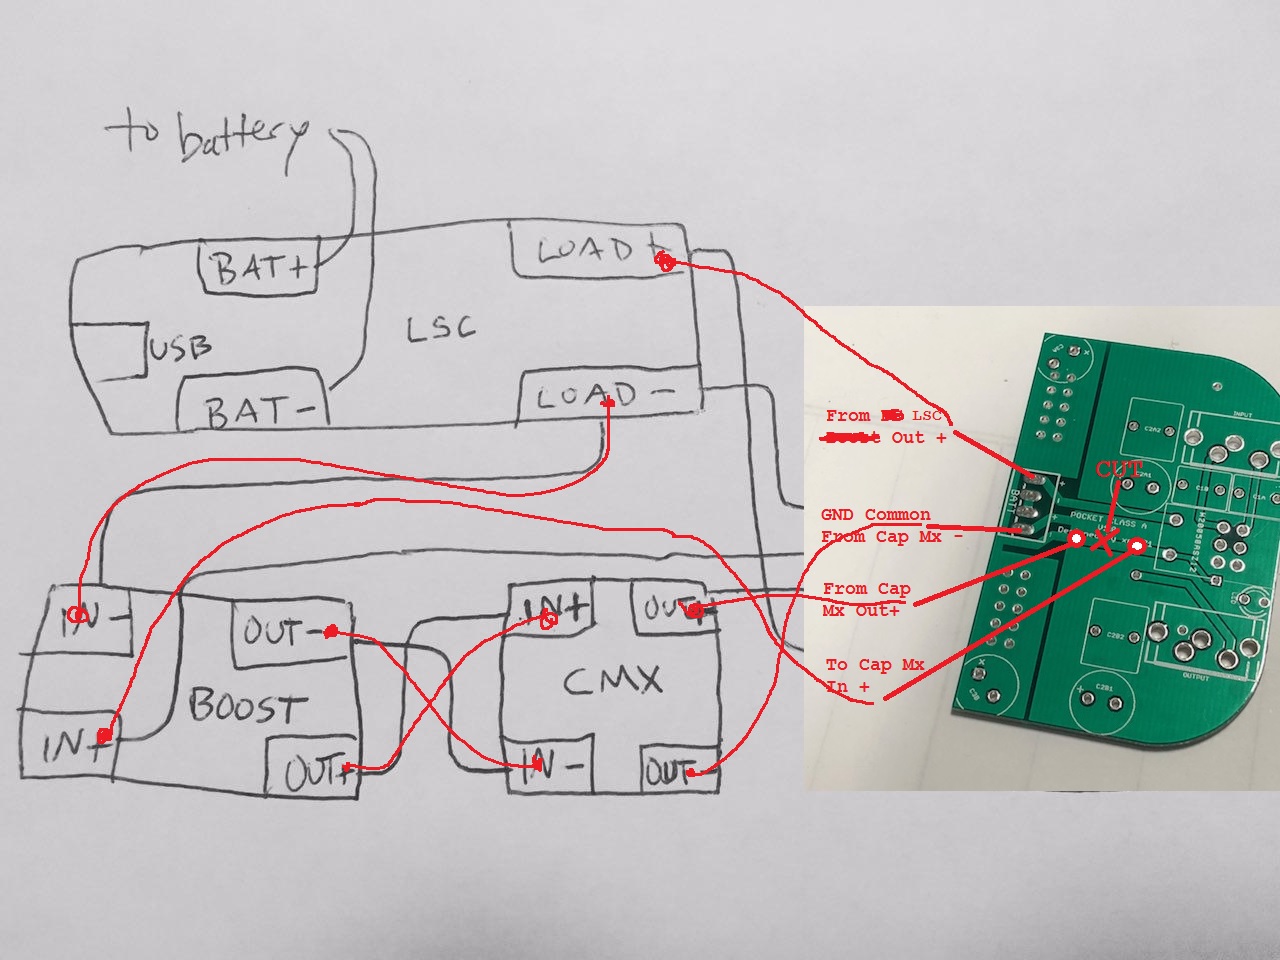 to battery
BAT+
LOAD +
USB
LSC
BAT-
LOAD -
IN-
OUT-
BOOST
IN+
OUT+
IN+
OUT+
CMX
IN-
OUT-
From LSC
Out +
GND Common
From Cap Mx -
From Cap
Mx Out+
To Cap Mx
In +
CUT
INPUT
C2A2
C2A1
C1B
C1A
BAT
POCKET CLASS A
C2B2
C2B1
OUTPUT